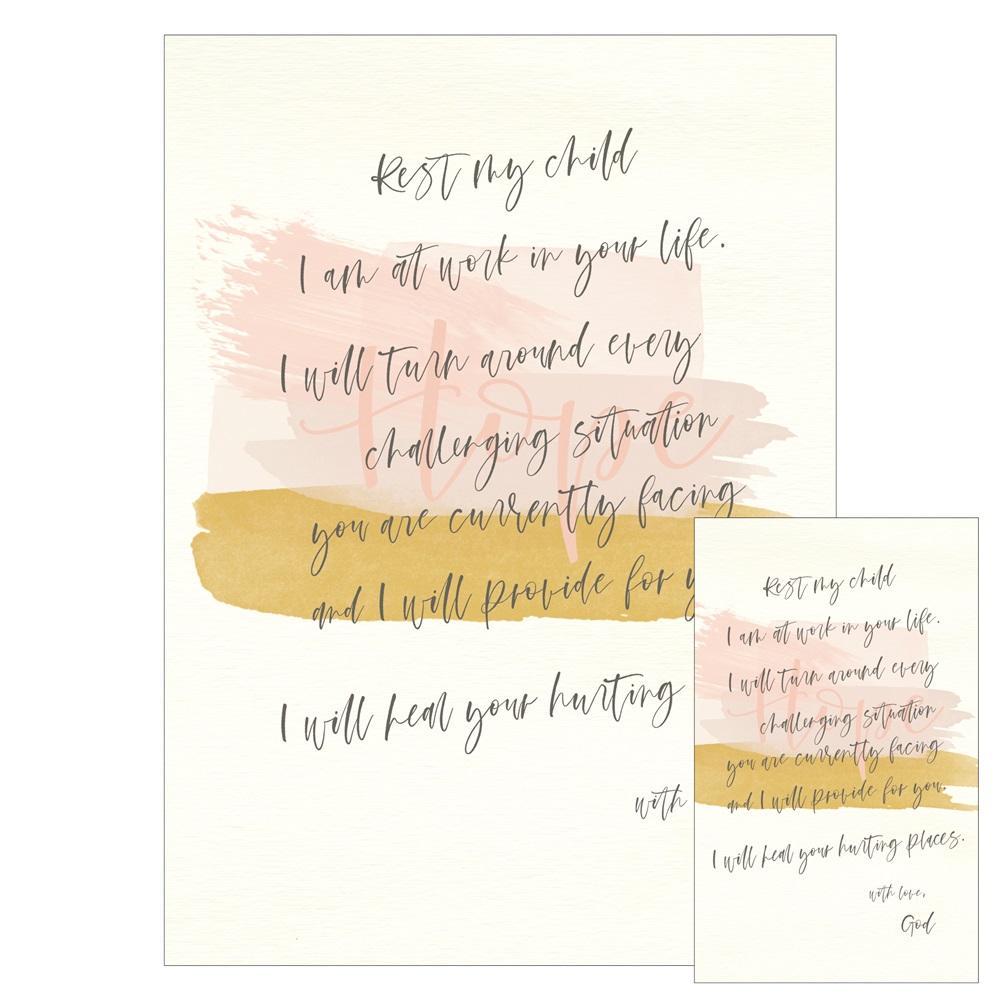 Rest my child
I am at work in your life.
Hope
I will turn around every
challenging situation
you are currently facing
and I will provide for y
I will heal your hurting
with
Rest my child
I am at work in your life.
Hope
I will turn around every
challenging situation
you are currently facing
and I will provide for you.
I will heal your hurting places.
with love,
God